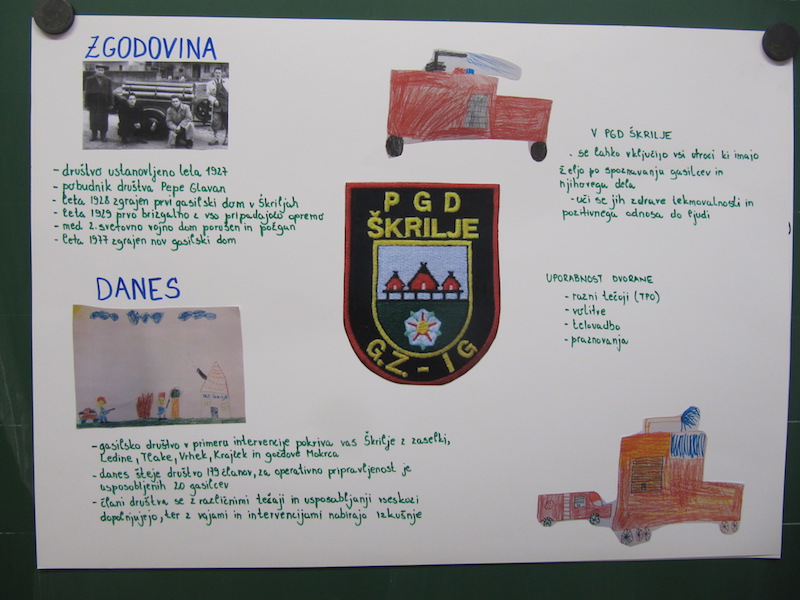 ZGODOVINA
- društvo ustanovljeno leta 1927
- pobudnik društva Pepe Glavan
- leta 1928 zgrajen prvi gasilski dom v Škriljah
- leta 1929 prvo brizgalno z vso pripadajočo opremo
- med 2. svetovno vojno dom porušen in požgan
- leta 1977 zgrajen nov gasilski dom
DANES
- gasilsko društvo v primeru intervencije pokriva vas Škrilje z zaselki,
Ledine, Tlake, Vrhek, Krajček in gozdove Mokrca
- danes šteje društvo 179 članov, za operativno pripravljenost je
usposobljenih 20 gasilcev
- člani društva se z različnimi tečaji in usposabljanji vseskozi
dopolnjujejo, ter z vajami in intervencijami nabirajo izkušnje
PGD
ŠKRILJE
G.Z. - IG
V PGD ŠKRILJE
- se lahko vključijo vsi otroci ki imajo
željo po spoznavanju gasilcev in
njihovega dela
- uči se jih zdrave tekmovalnosti in
pozitivnega odnosa do ljudi
UPORABNOST DVORANE
- razni tečaji (TPO)
- volitve
- telovadbo
- praznovanja